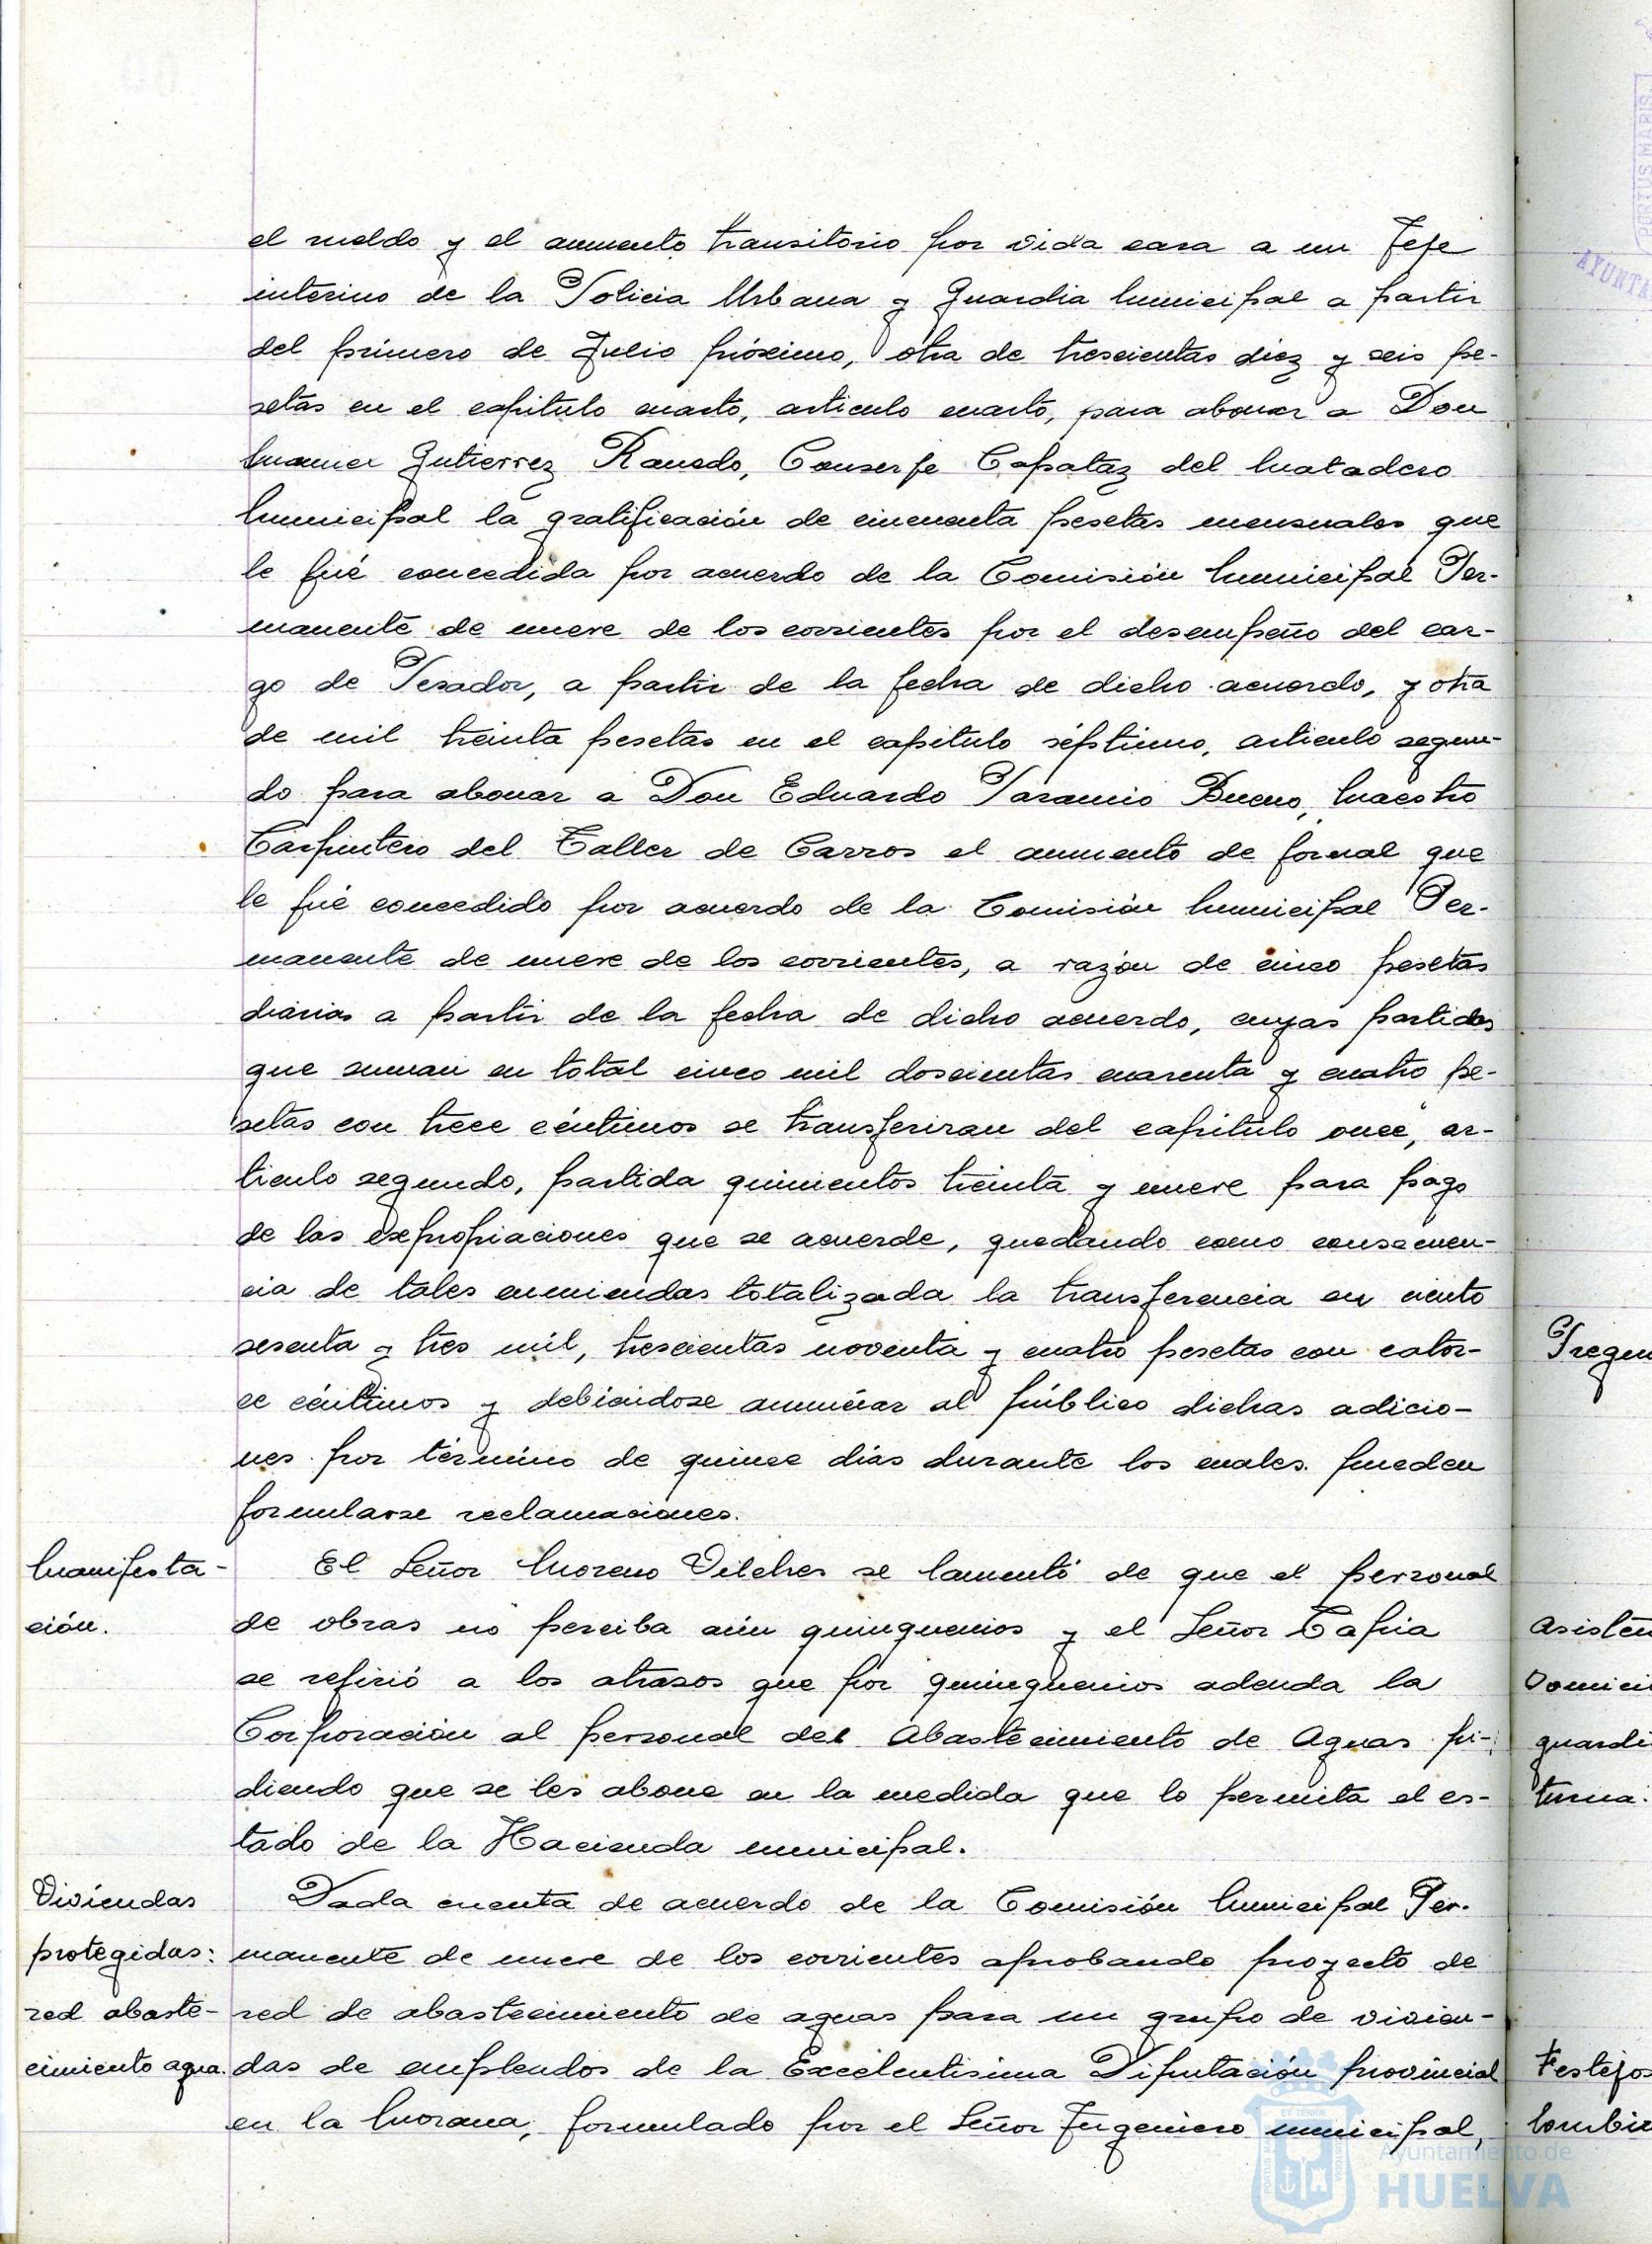 el sueldo y el aumento transitorio por vida cara a un Jefe
interino de la Policia Urbana y Guardia Municipal a partir
del primero de Julio próximo, otra de trescientas diez y seis pe-
setas en el capitulo cuarto, articulo cuarto, para abonar a Don
Manuel Gutierrez Ranedo, Conserje Capataz del Matadero
Municipal la gratificación de cincuenta pesetas mensuales que
le fué concedida por acuerdo de la Comisión Municipal Per-
manente de nueve de los corrientes por el desempeño del car-
go de Pesador, a partir de la fecha de dicho acuerdo, y otra
de mil treinta pesetas en el capitulo séptimo, articulo segun-
do para abonar a Don Eduardo Paramio Bueno, Maestro
Carpintero del Taller de Carros el aumento de jornal que
le fué concedido por acuerdo de la Comisión Municipal Per-
manente de nueve de los corrientes, a razón de cinco pesetas
diarias a partir de la fecha de dicho acuerdo, cuyas partidas
que suman en total cinco mil doscientas cuarenta y cuatro pe-
setas con trece céntimos se transferiran del capitulo once, ar-
ticulo segundo, partida quinientos treinta y nueve para pago
de las expropiaciones que se acuerde, quedando como consecuen-
cia de tales enmiendas totalizada la transferencia en ciento
sesenta y tres mil, trescientas noventa y cuatro pesetas con cator-
ce céntimos y debiéndose anunciar al público dichas adicio-
nes por término de quince dias durante los cuales pueden
formularse reclamaciones.
Manifesta-
ción.
El Señor Moreno Vilches se lamentó de que el personal
de obras no perciba aún quinquenios y el Señor Tapia
se refirió a los atrasos que por quinquenios adeuda la
Corporación al personal del Abastecimiento de Aguas pi-
diendo que se les abone en la medida que lo permita el es-
tado de la Hacienda municipal.
Viviendas
protegidas:
red abaste-
cimiento agua.
Dada cuenta de acuerdo de la Comisión Municipal Per-
manente de nueve de los corrientes aprobando proyecto de
red de abastecimiento de aguas para un grupo de vivien-
das de empleados de la Excelentisima Diputación provincial
en la Morana, formulado por el Señor Ingeniero municipal,
Ayuntamiento de
HUELVA